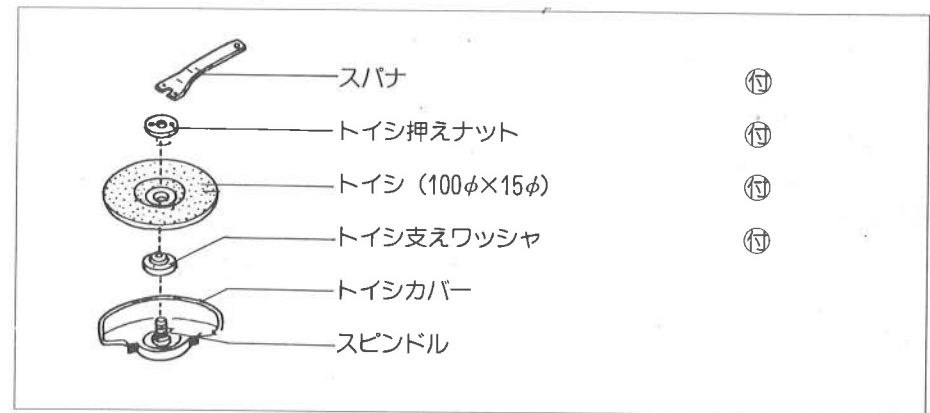 スパナ ㊒
トイシ押えナット ㊒
トイシ（100φ×15φ） ㊒
トイシ支えワッシャ ㊒
トイシカバー
スピンドル